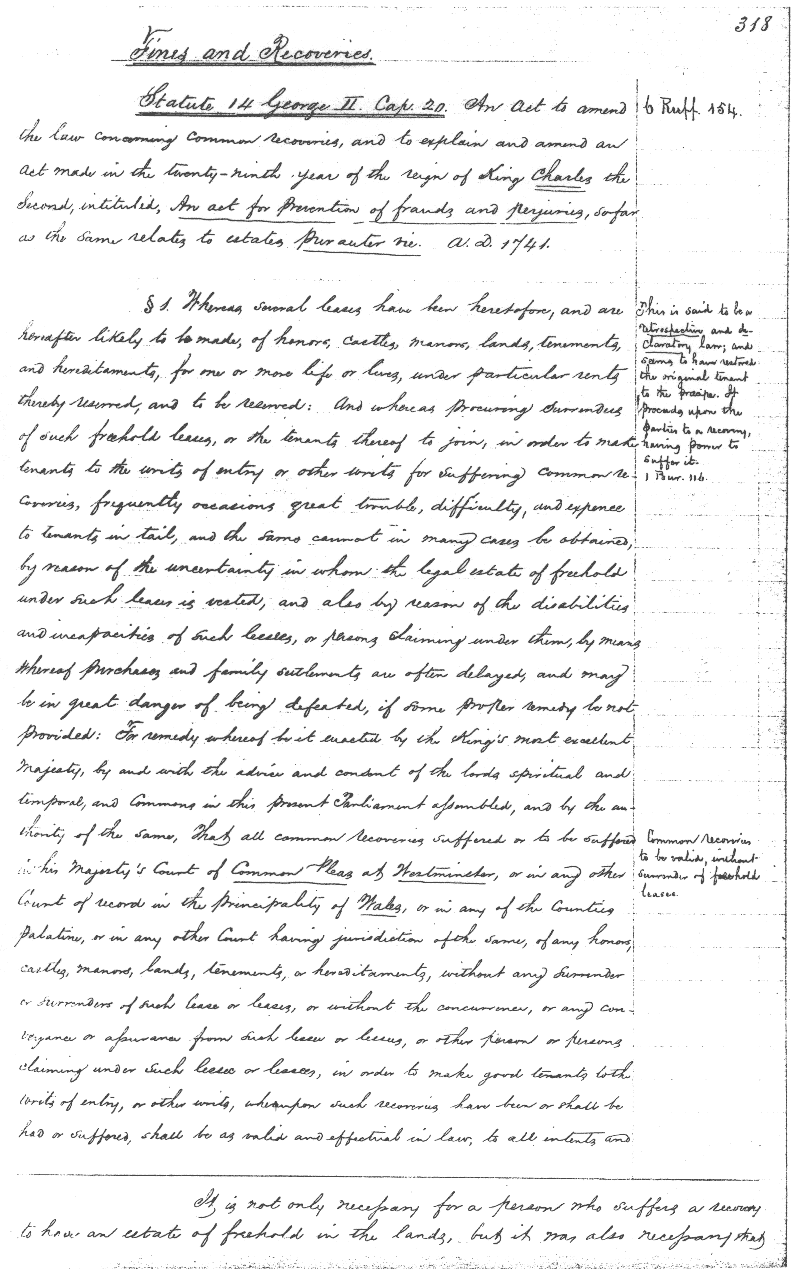 318
Fines and Recoveries.
Statute 14 George II. Cap. 20. An Act to amend
the law concerning common recoveries, and to explain and amend an
act made in the twenty-ninth year of the reign of King Charles the
Second, intituled, An act for Prevention of frauds and perjuries, so far
as the same relates to estates pur auter vie. A.D. 1741.
6 Ruff. 154.
§ 1. Whereas several leases have been heretofore, and are
hereafter likely to be made, of honors, castles, manors, lands, tenements,
and hereditaments, for one or more life or lives, under particular rents
thereby reserved, and to be reserved: And whereas procuring surrenders
of such freehold leases, or the tenants thereof to join, in order to make
tenants to the writs of entry or other writs for suffering common re-
coveries, frequently occasions great trouble, difficulty, and expence
to tenants in tail, and the same cannot in many cases be obtained,
by reason of the uncertainty in whom the legal estate of freehold
under such leases is vested, and also by reason of the disabilities
and incapacities of such lessees, or persons claiming under them, by means
whereof purchases and family settlements are often delayed, and may
be in great danger of being defeated, if some proper remedy be not
provided: For remedy whereof be it enacted by the King's most excellent
Majesty, by and with the advice and consent of the lords spiritual and
temporal, and Commons in this present Parliament assembled, and by the au-
thority of the same, That all common recoveries suffered or to be suffered
in his Majesty's Court of Common Pleas at Westminster, or in any other
Court of record in the Principality of Wales, or in any of the Counties
Palatine, or in any other Court having jurisdiction of the same, of any honors,
castles, manors, lands, tenements, or hereditaments, without any surrender
or surrenders of such lease or leases, or without the concurrence, or any con-
veyance or assurance from such lessee or lessees, or other person or persons
claiming under such lessee or lessees, in order to make good tenants to the
writs of entry, or other writs, whereupon such recoveries have been or shall be
had or suffered, shall be as valid and effectual in law, to all intents and
This is said to be a
retrospective and de-
claratory law; and
seems to have restored
the original tenant
to the præcipe. It
proceeds upon the
parties to a recovery,
having power to
suffer it.
1 Bur. 116.
Common recoveries
to be valid, without
surrender of freehold
leases.
It is not only necessary for a person who suffers a recovery
to have an estate of freehold in the lands, but it was also necessary that